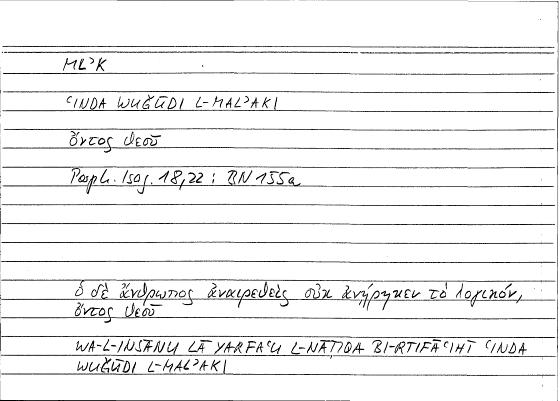 MLʾK
ʿINDA WUǦŪDI L-MALʾAKI
ὄντος θεοῦ
Porph. Isag. 18,22 ; BN 155a
ὁ δὲ ἄνθρωπος ἀναιρεθεὶς οὐκ ἀνῄρηκεν τὸ λογικόν,
ὄντος θεοῦ
WA-L-INSĀNU LĀ YARFAʿU L-NĀṬIQA BI-RTIFĀʿIHĪ ʿINDA
WUǦŪDI L-MALʾAKI